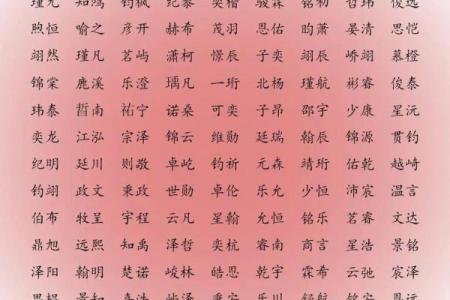 煦恒 喻之 彦开 赫希 茂羽 恩佑 昀萧 晏清 思恺
翊然 瑾凡 茗屿 潇柯 憬辰 子奕 翊辰 峤易 慕橙
锦棠 鹿溪 乐澄 瑀凡 一珩 北杨 瑾航 彬睿 俊泰
玮泰 晢南 祐宁 诺桑 可奕 子昂 邵宇 少康 星沅
奕龙 江泓 宗泽 锦云 维勋 廷瑞 翰辰 锦源 贯钧
纪明 延川 则敬 卓屹 钧祈 元森 靖珩 佑乾 越崎
钧翊 政文 秉政 世勋 卓伦 乐允 少恒 沛宸 温言
伯布 牧呈 宇程 云凡 星翰 允恒 铭乐 茗睿 文达
鼎旭 远熙 知禹 泽哲 奕杭 睿南 商言 星浩 景铭
泽阳 翰明 楚诺 峻林 皓恩 乾宇 霖希 云弛 宸泽